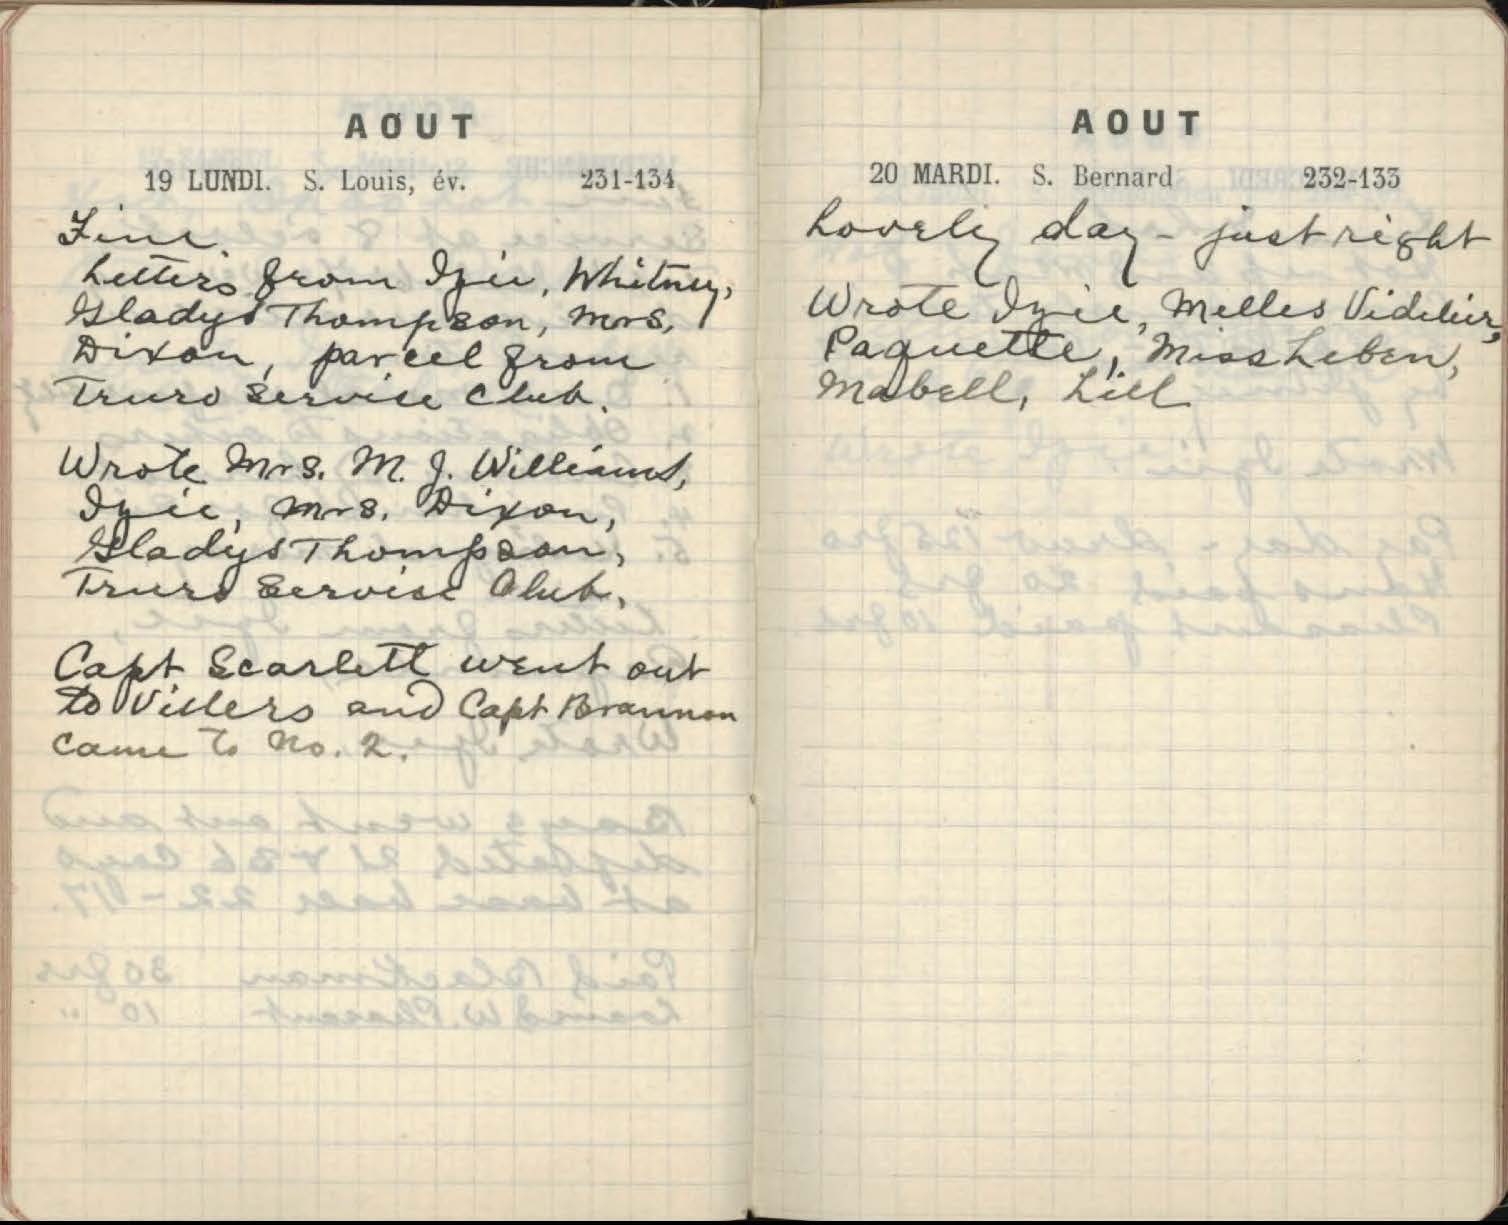 AOUT
19 LUNDI. S. Louis, év. 231-134
Fine.
Letters from Izie, Whitney,
Gladys Thompson, Mrs.
Dixon, parcel from
Truro Servise Club.
Wrote Mrs. M. J. Williams,
Izie, Mrs. Dixon,
Gladys Thompson,
Truro Servise Club.
Capt Scarlett went out
to Villers and Capt Brannon
came to No. 2.
AOUT
20 MARDI. S. Bernard 232-133
Lovely day - just right
Wrote Izie, Melles
Paquette, Miss Leben,
Mabell, Lill